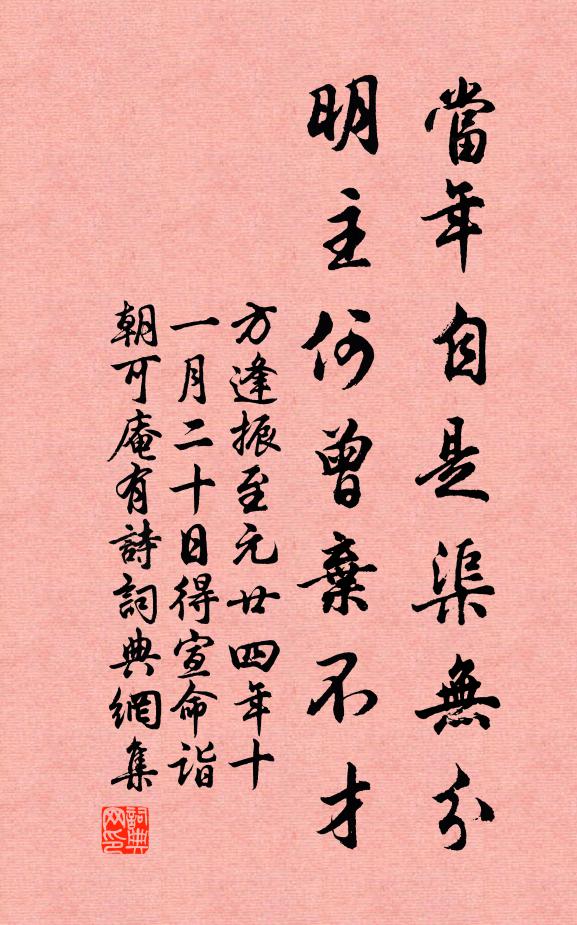 當年自是渠無分
明主何曾棄不才
方逢振至元廿四年十
一月二十日得宣命詣
朝可庵有詩詞典網集
詞典网印